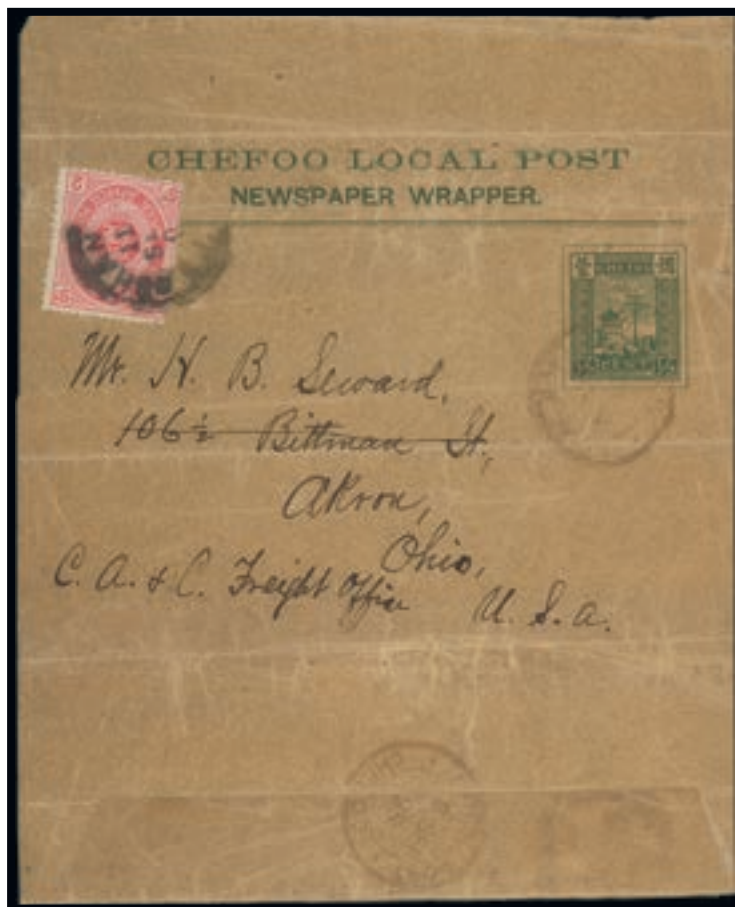 CHEFOO LOCAL POST
NEWSPAPER WRAPPER.
CHEFOO
½ CENT ½
Mr. H. B. Seward,
106½ Bittman St.,
Akron,
Ohio,
C. A. & C. Freight Office
U. S. A.